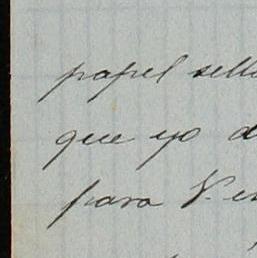 papel sell
que yo d
para V. en